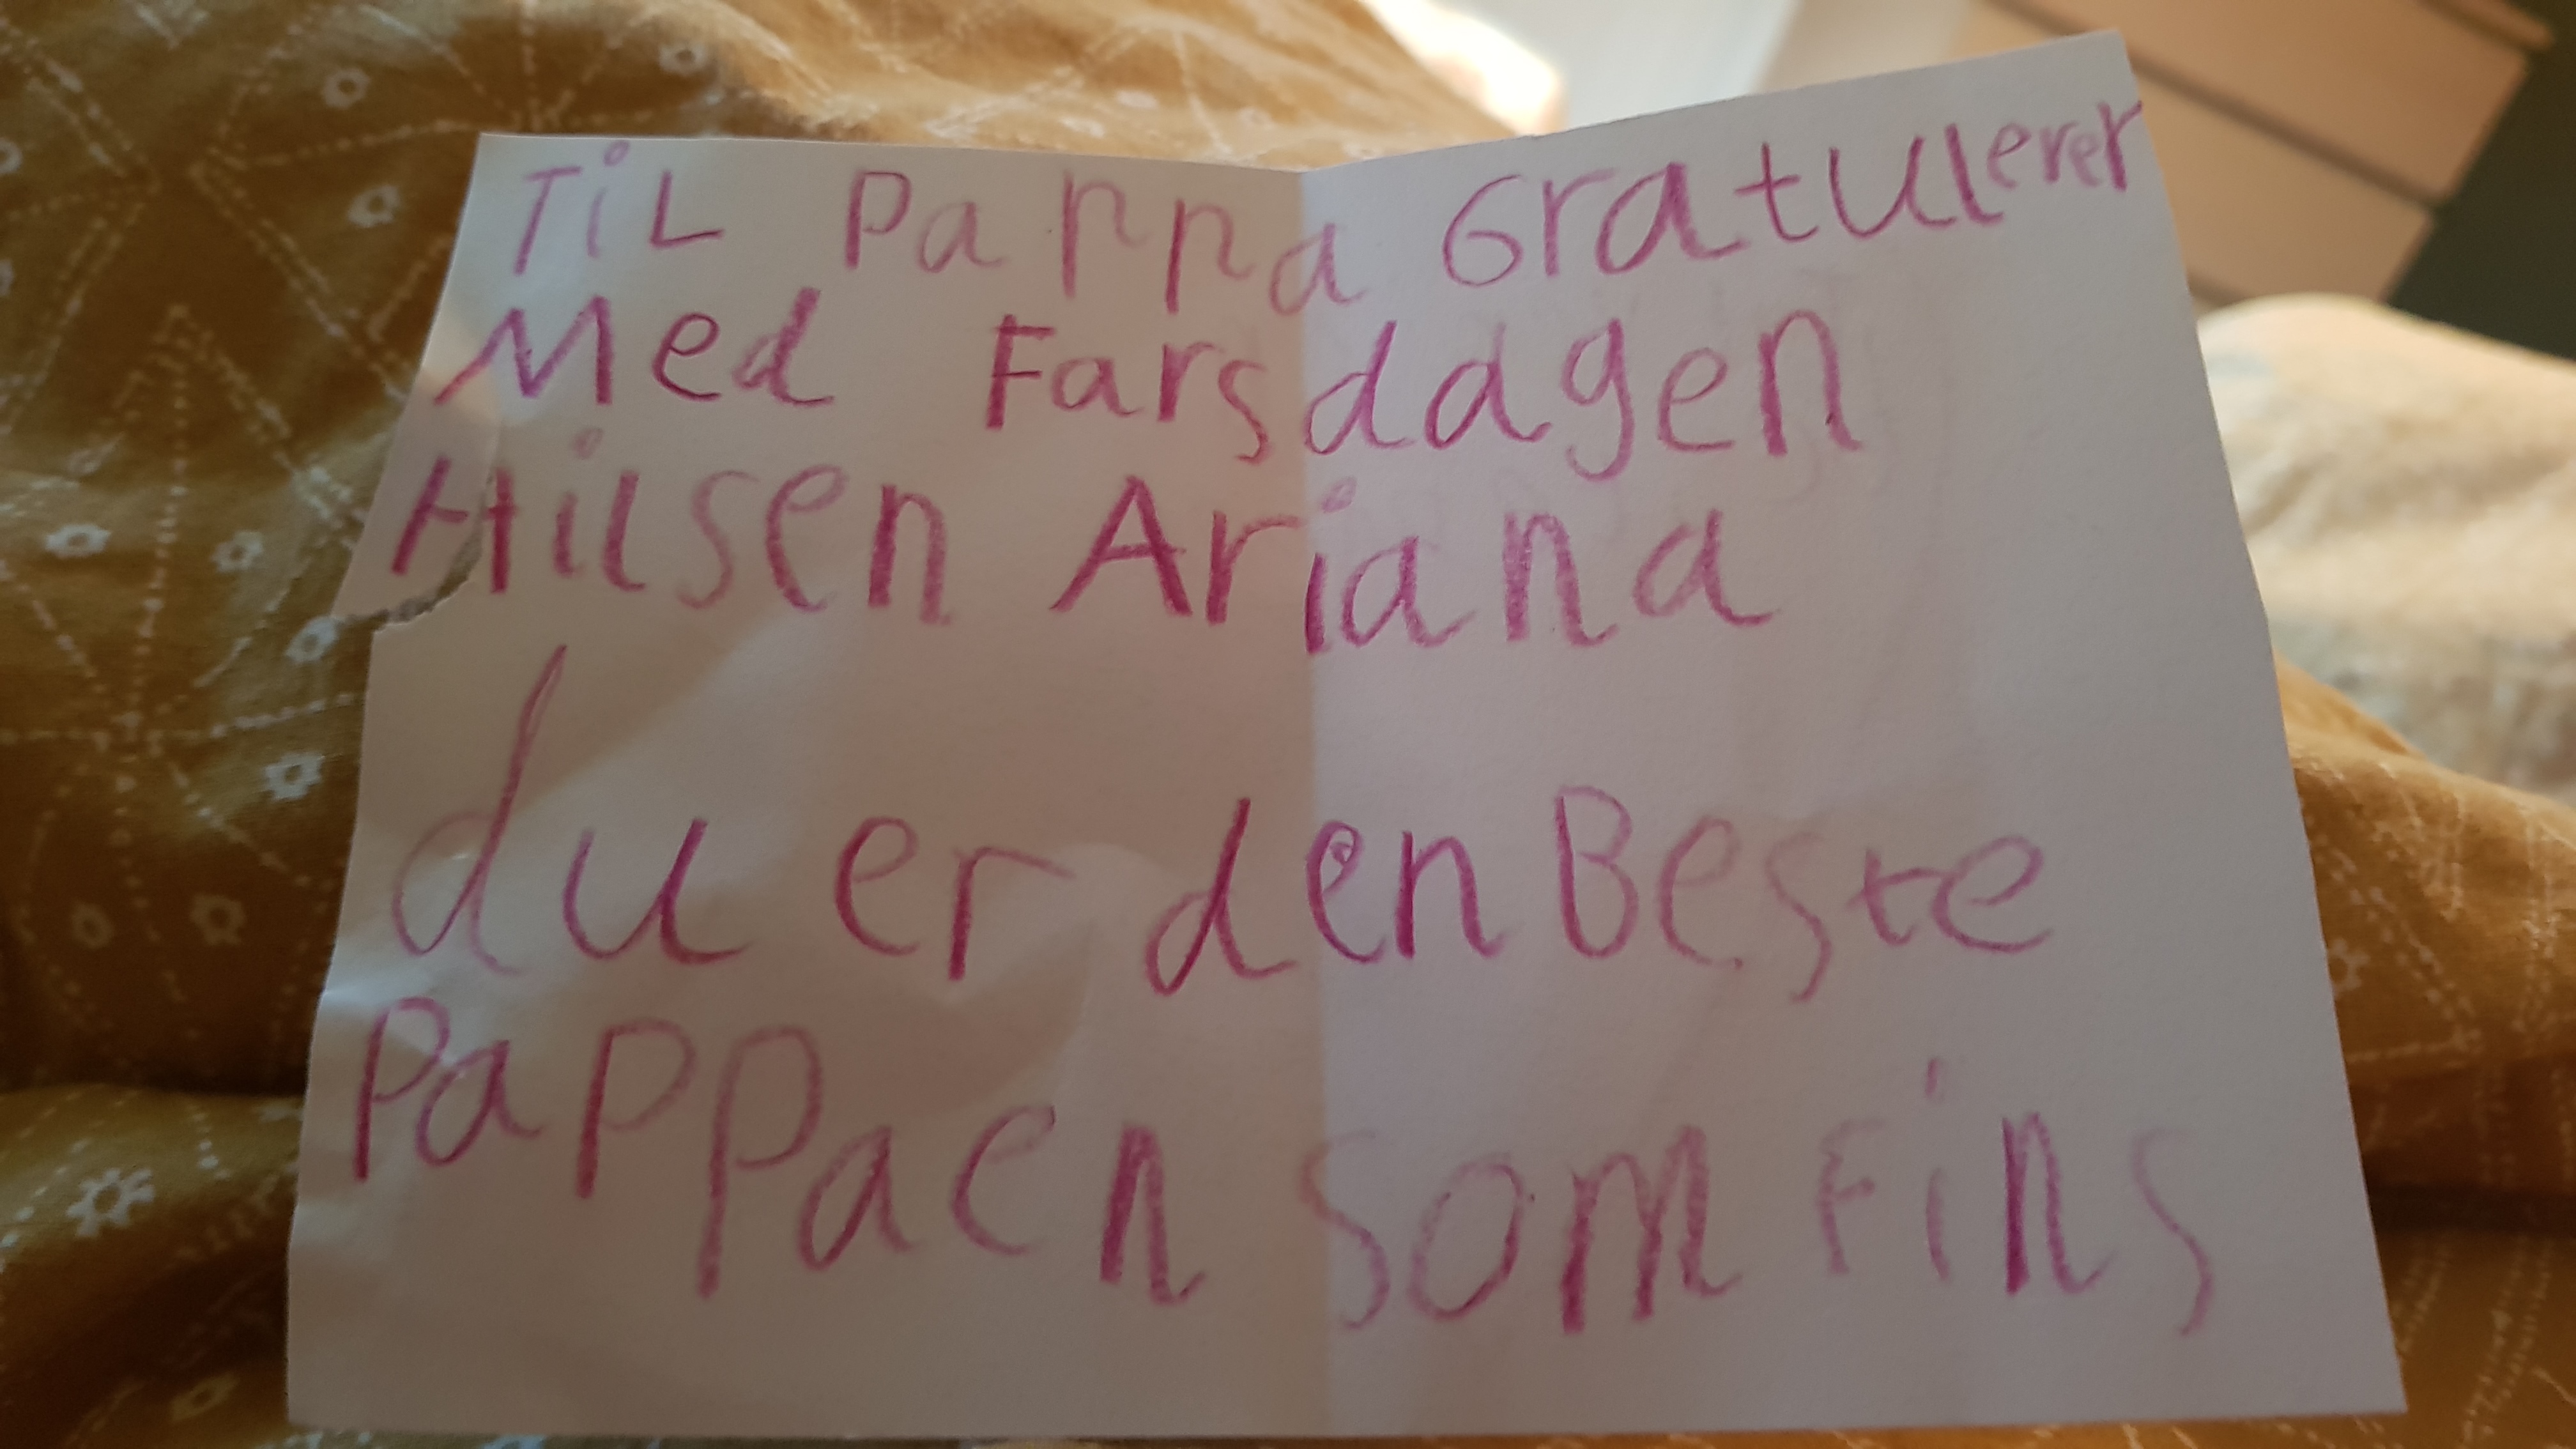 TiL Pappa Gratulerer
Med Farsdagen
Hilsen Ariana
du er den Beste
Pappaen som Fins